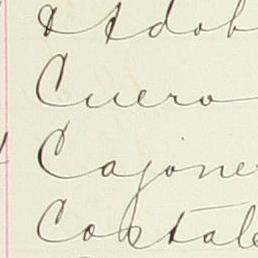 Adob
Cuero
Cajone
Costale